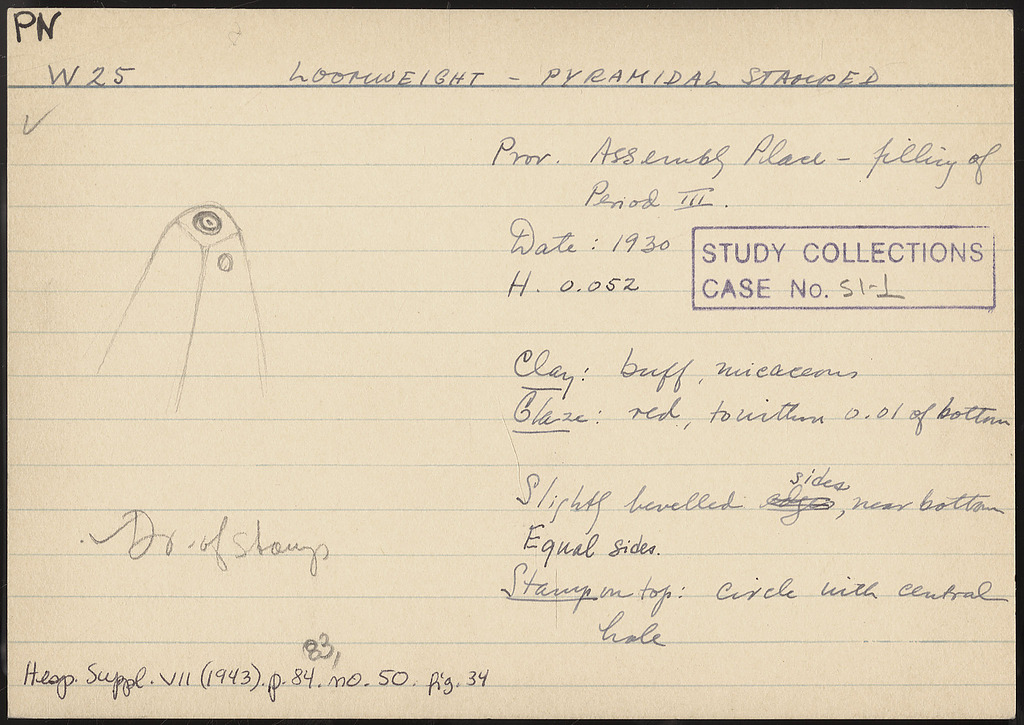 PN
W 25 LOOMWEIGHT - PYRAMIDAL STAMPED
Prov. Assembly Place - filling of
Period III.
Date: 1930
H. 0.052
STUDY COLLECTIONS
CASE No. S1-1
Clay: buff, micaceous
Glaze: red, to within 0.01 of bottom
sides
Slightly bevelled edges, near bottom
Equal sides.
Dr. of Stamp
Stamp on top: circle with central
hole
83,
Hesp. Suppl. VII (1943). p. 84. no. 50. fig. 34